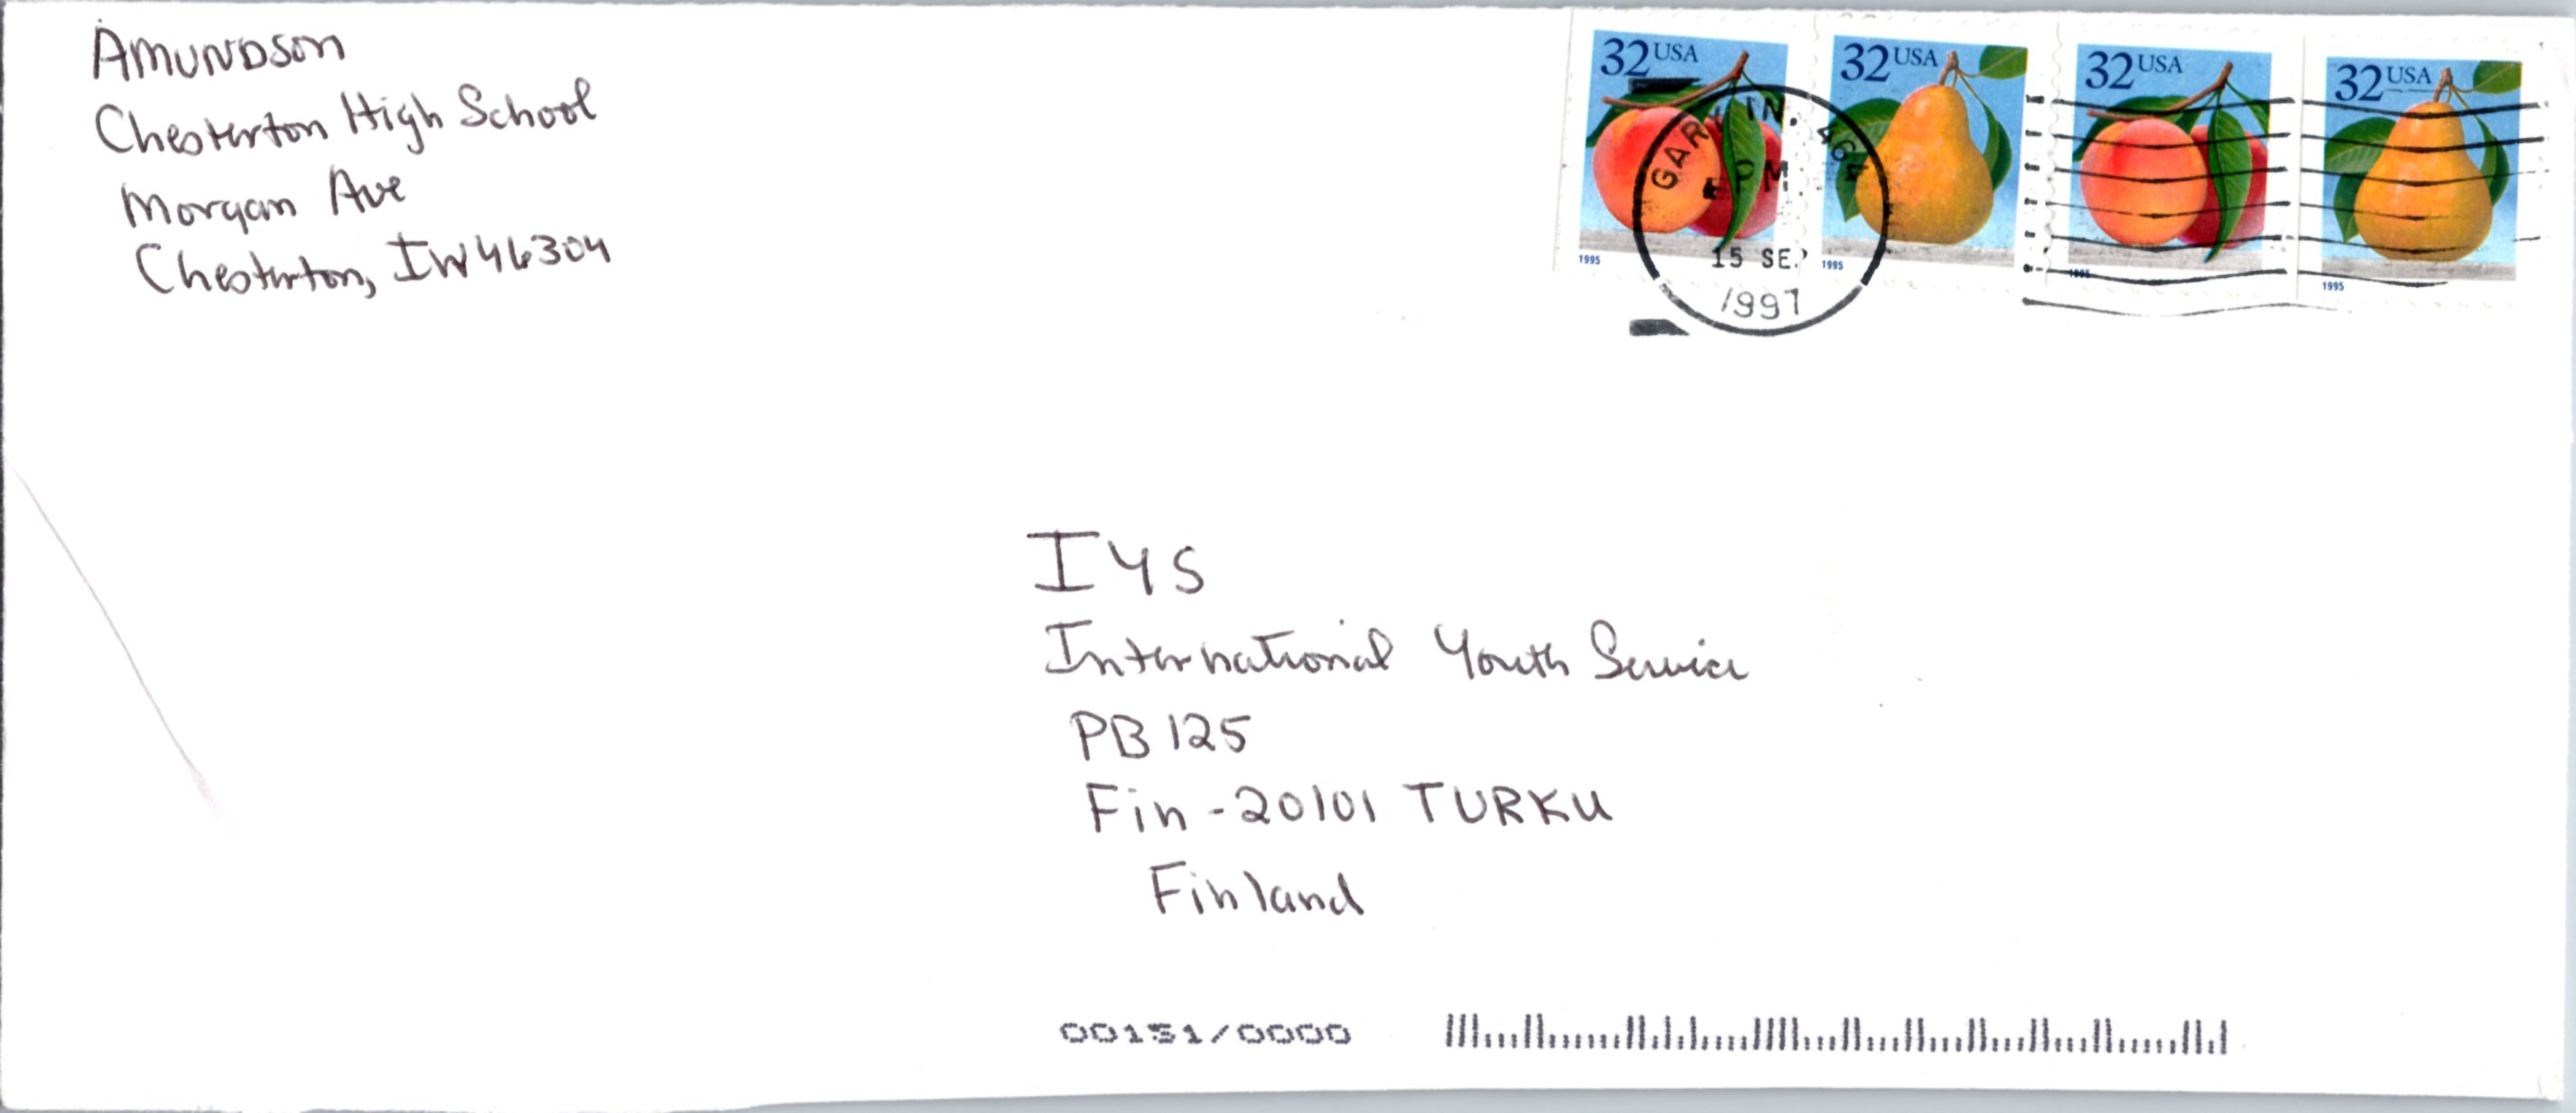 AMUNDSON
Chesterton High School
Morgan Ave
Chesterton, IN 46304
32 USA
32 USA
32 USA
32 USA
GARY IN. 464
PM
15 SE
1997
1995
1995
1995
1995
IYS
International Youth Service
PB 125
Fin - 20101 TURKU
Finland
00151/0000